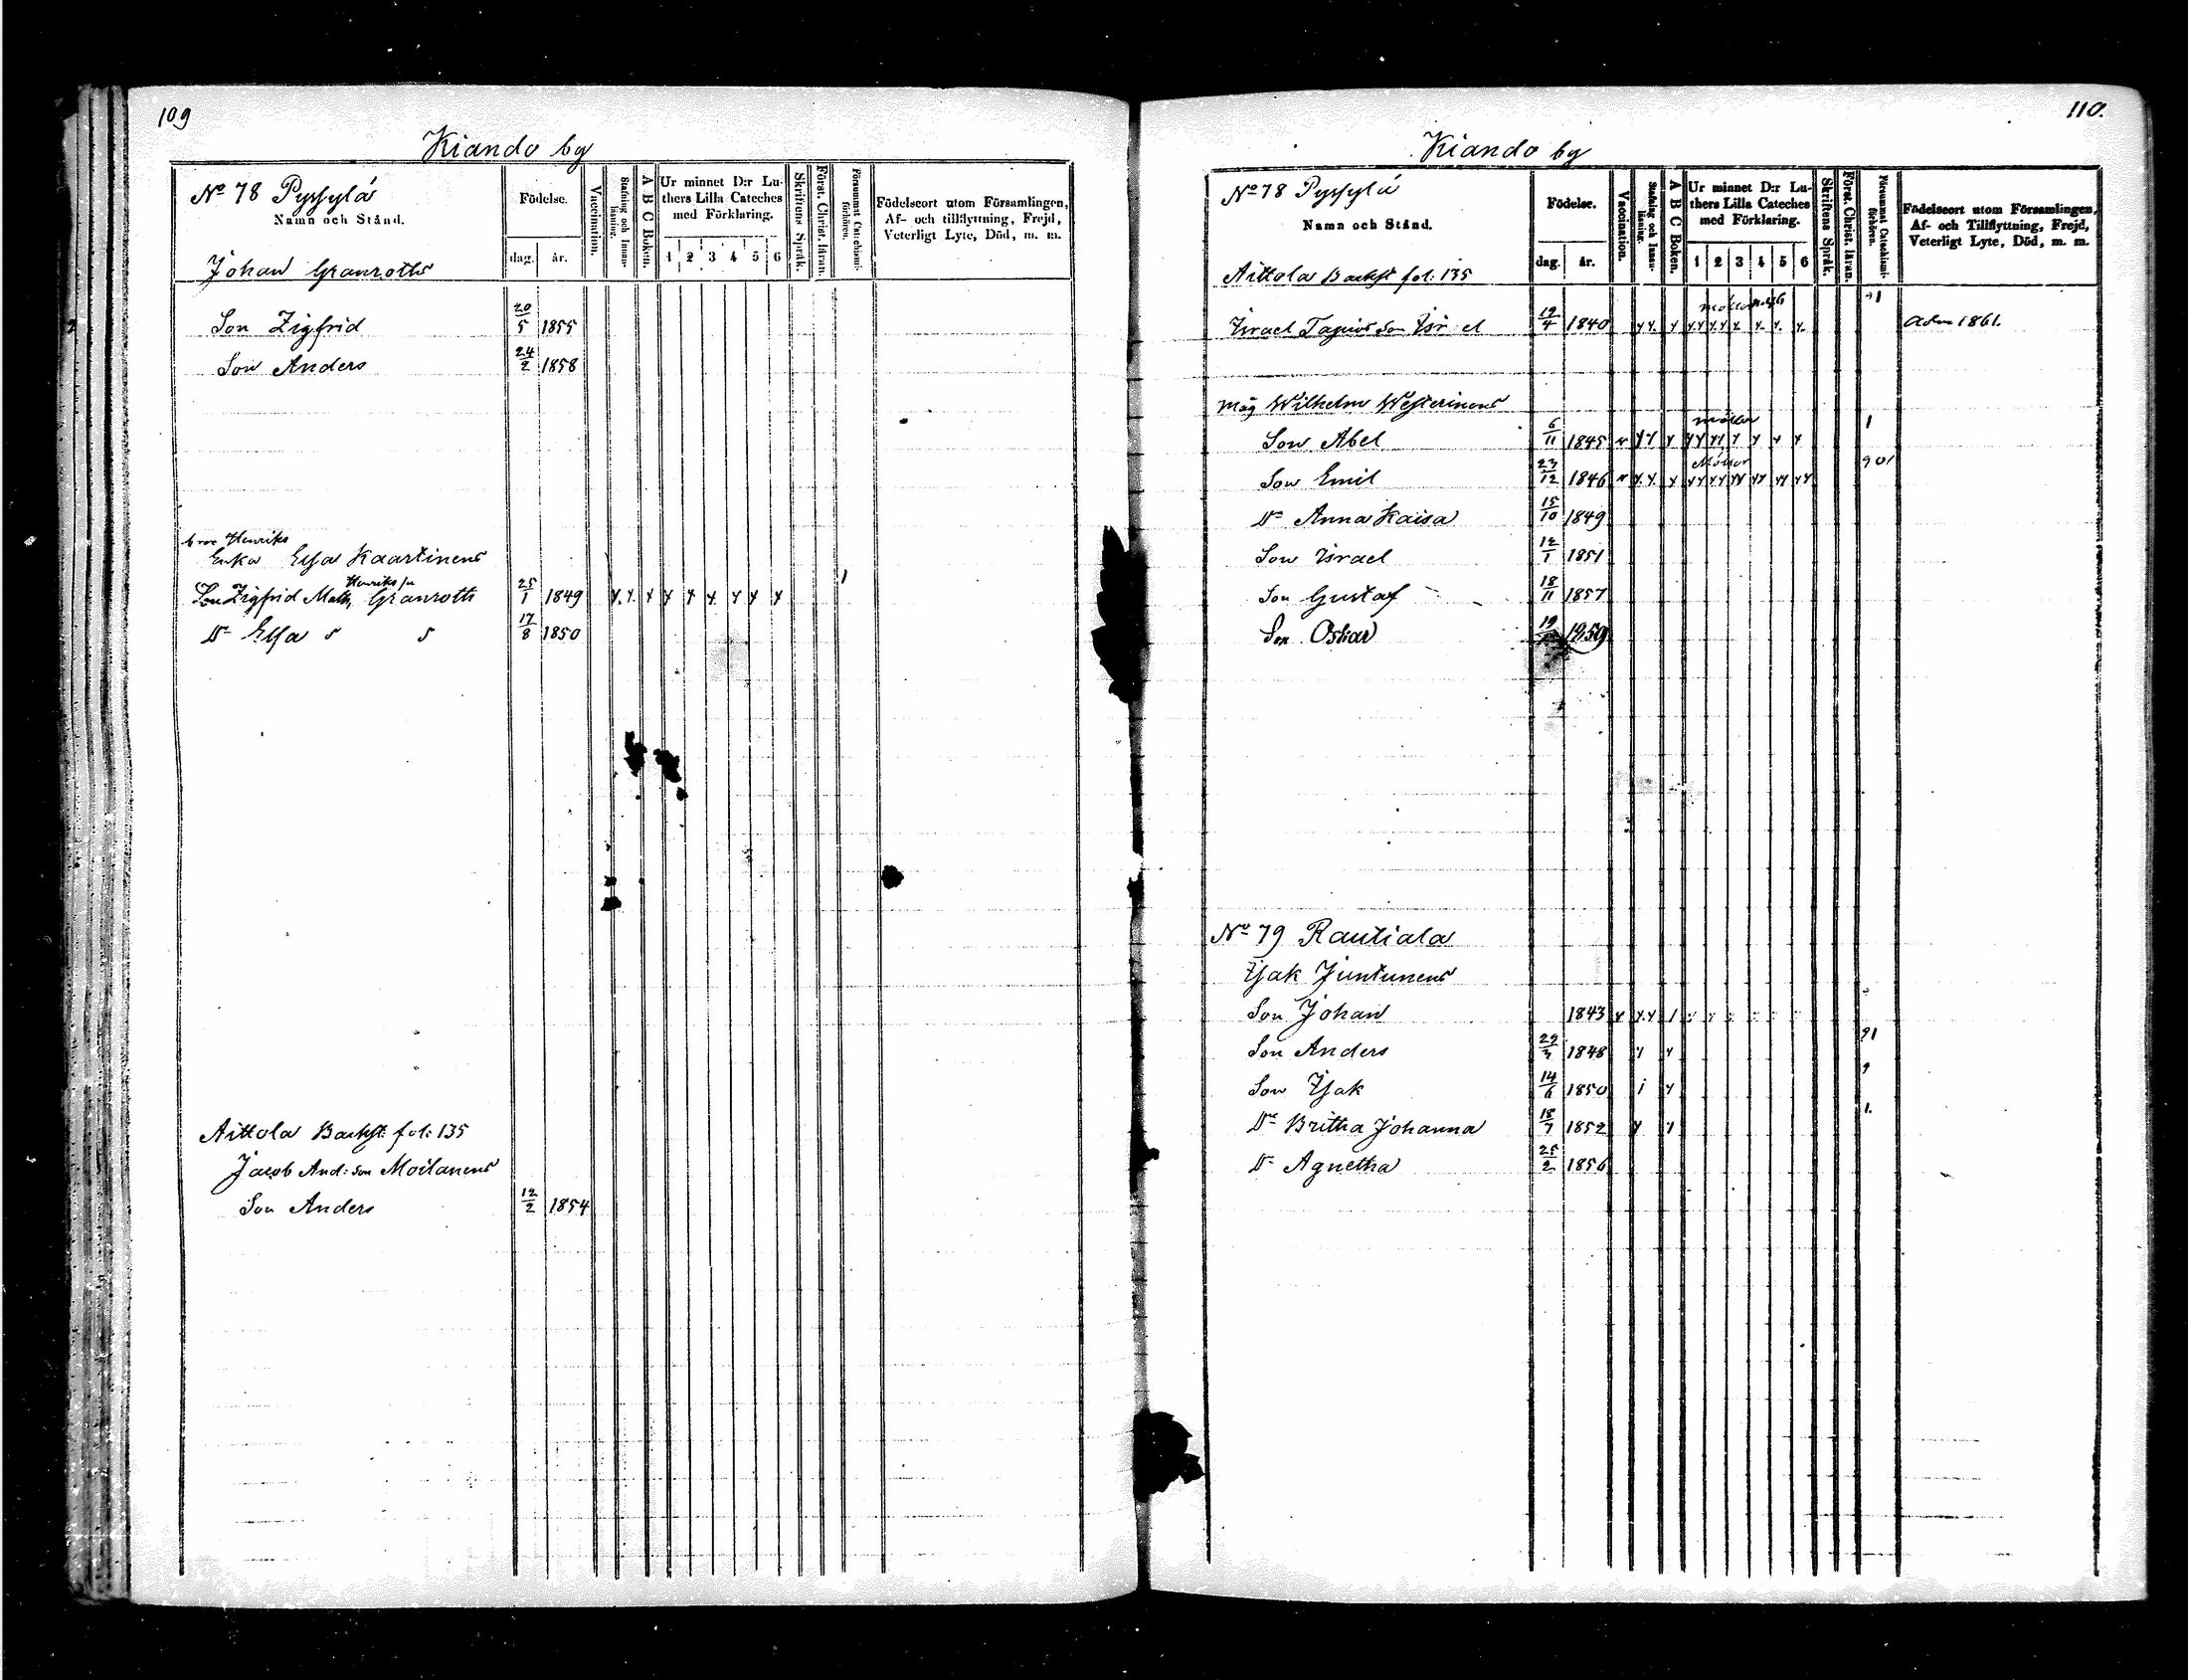 109
Kiando by
No 78 Pyssylä
Namn och Stånd.
Födelse.
dag. år.
Vaccination.
Stafning och Innanläsning.
A B C Boken.
Ur minnet D:r Luthers Lilla Cateches med Förklaring.
1 2 3 4 5 6
Skriftens Språk.
Först. Christ. läran.
Försummat Catechismiförhören.
Födelseort utom Församlingen,
Af- och tillflyttning, Frejd,
Veterligt Lyte, Död, m. m.
Johan Granroths
Son Zigfrid 20/5 1855
Son Anders 24/2 1858
bror Henriks
Enka Elsa Kaartinens
Henriks
Son Zigfrid Granroth 25/1 1849 1
Dr Elsa 17/8 1850
Aittola Backst: fol: 135
Jacob And: son Moilanens
Son Anders 12/2 1854
110.
Kiando by
No 78 Pyssylä
Namn och Stånd.
Födelse.
dag. år.
Vaccination.
Stafning och Innanläsning.
A B C Boken.
Ur minnet D:r Luthers Lilla Cateches med Förklaring.
1 2 3 4 5 6
Skriftens Språk.
Först. Christ. läran.
Försummat Catechismiförhören.
Födelseort utom Församlingen,
Af- och Tillflyttning, Frejd,
Veterligt Lyte, Död, m. m.
Aittola Backst fol: 135
Israel Tapios Son 1840 Adm 1861.
Måg Wilhelm Westerinens
Son Abel 6/11 1845 1
Son Emil 23/12 1846
Dr Anna Kaisa 15/10 1849
Son Israel 12/1 1851
Son Gustaf 18/11 1857
Son Oskar 1859
No 79 Rautiala
Isak Juntunens
Son Johan 1843
Son Anders 29/3 1848 91
Son Isak 14/6 1850 9
Dr Britha Johanna 18/7 1852 1.
Dr Agnetha 25/2 1856